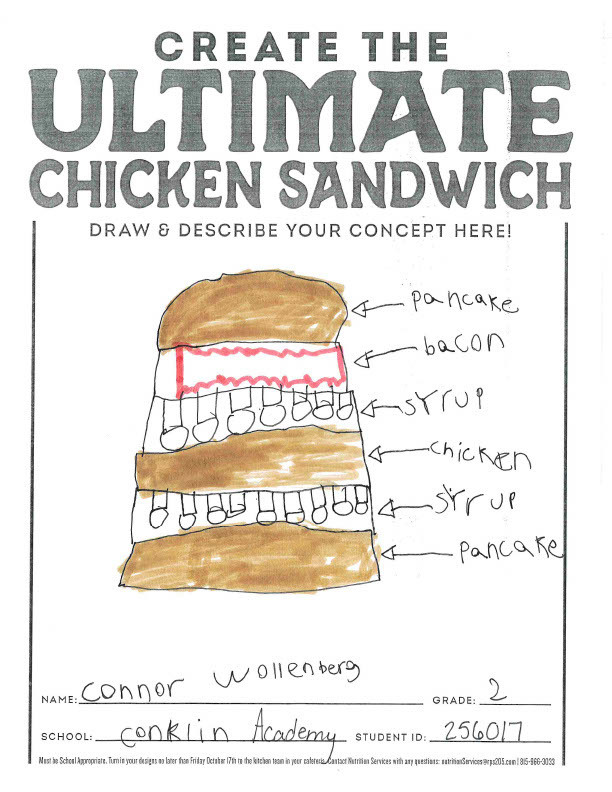 CREATE THE
ULTIMATE
CHICKEN SANDWICH
DRAW & DESCRIBE YOUR CONCEPT HERE!
pancake
bacon
syrup
chicken
syrup
pancake
NAME: Connor Wollenberg GRADE: 2
SCHOOL: Conklin Academy STUDENT ID: 256017
Must be School Appropriate. Turn in your designs no later than Friday October 17th to the kitchen team in your cafeteria. Contact Nutrition Services with any questions: nutritionServices@rps205.com | 815-966-3033